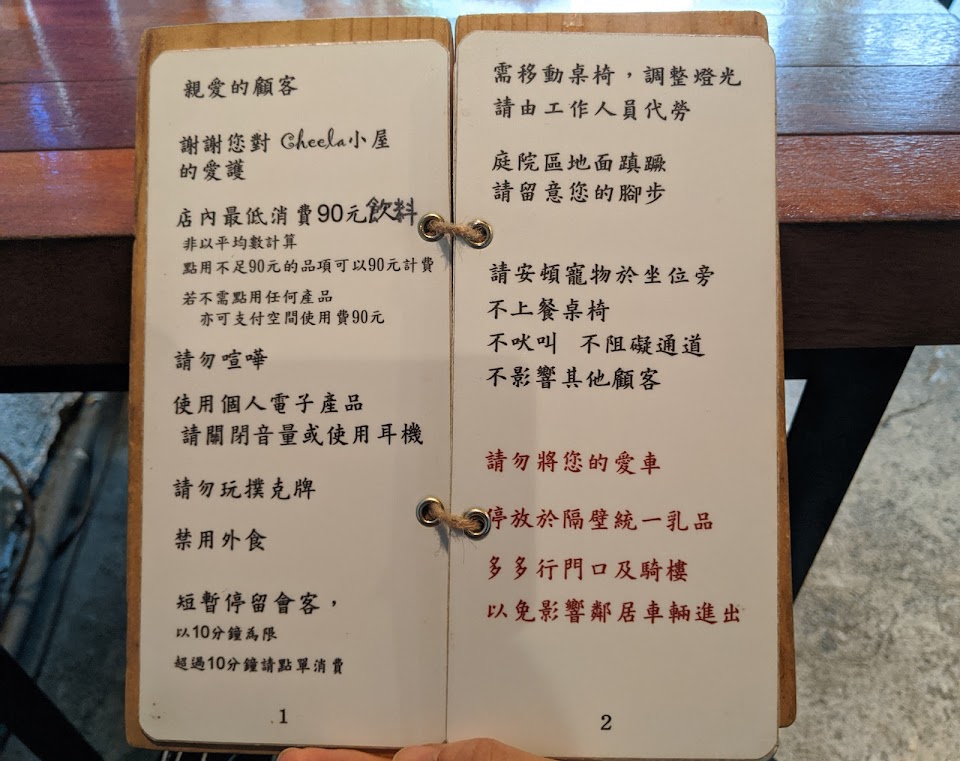 親愛的顧客
謝謝您對 Cheela小屋
的愛護
店內最低消費90元飲料
非以平均數計算
點用不足90元的品項可以90元計費
若不需點用任何產品
亦可支付空間使用費90元
請勿喧嘩
使用個人電子產品
請關閉音量或使用耳機
請勿玩撲克牌
禁用外食
短暫停留會客，
以10分鐘為限
超過10分鐘請點單消費
1
需移動桌椅，調整燈光
請由工作人員代勞
庭院區地面蹎蹶
請留意您的腳步
請安頓寵物於坐位旁
不上餐桌椅
不吠叫 不阻礙通道
不影響其他顧客
請勿將您的愛車
停放於隔壁統一乳品
多多行門口及騎樓
以免影響鄰居車輛進出
2